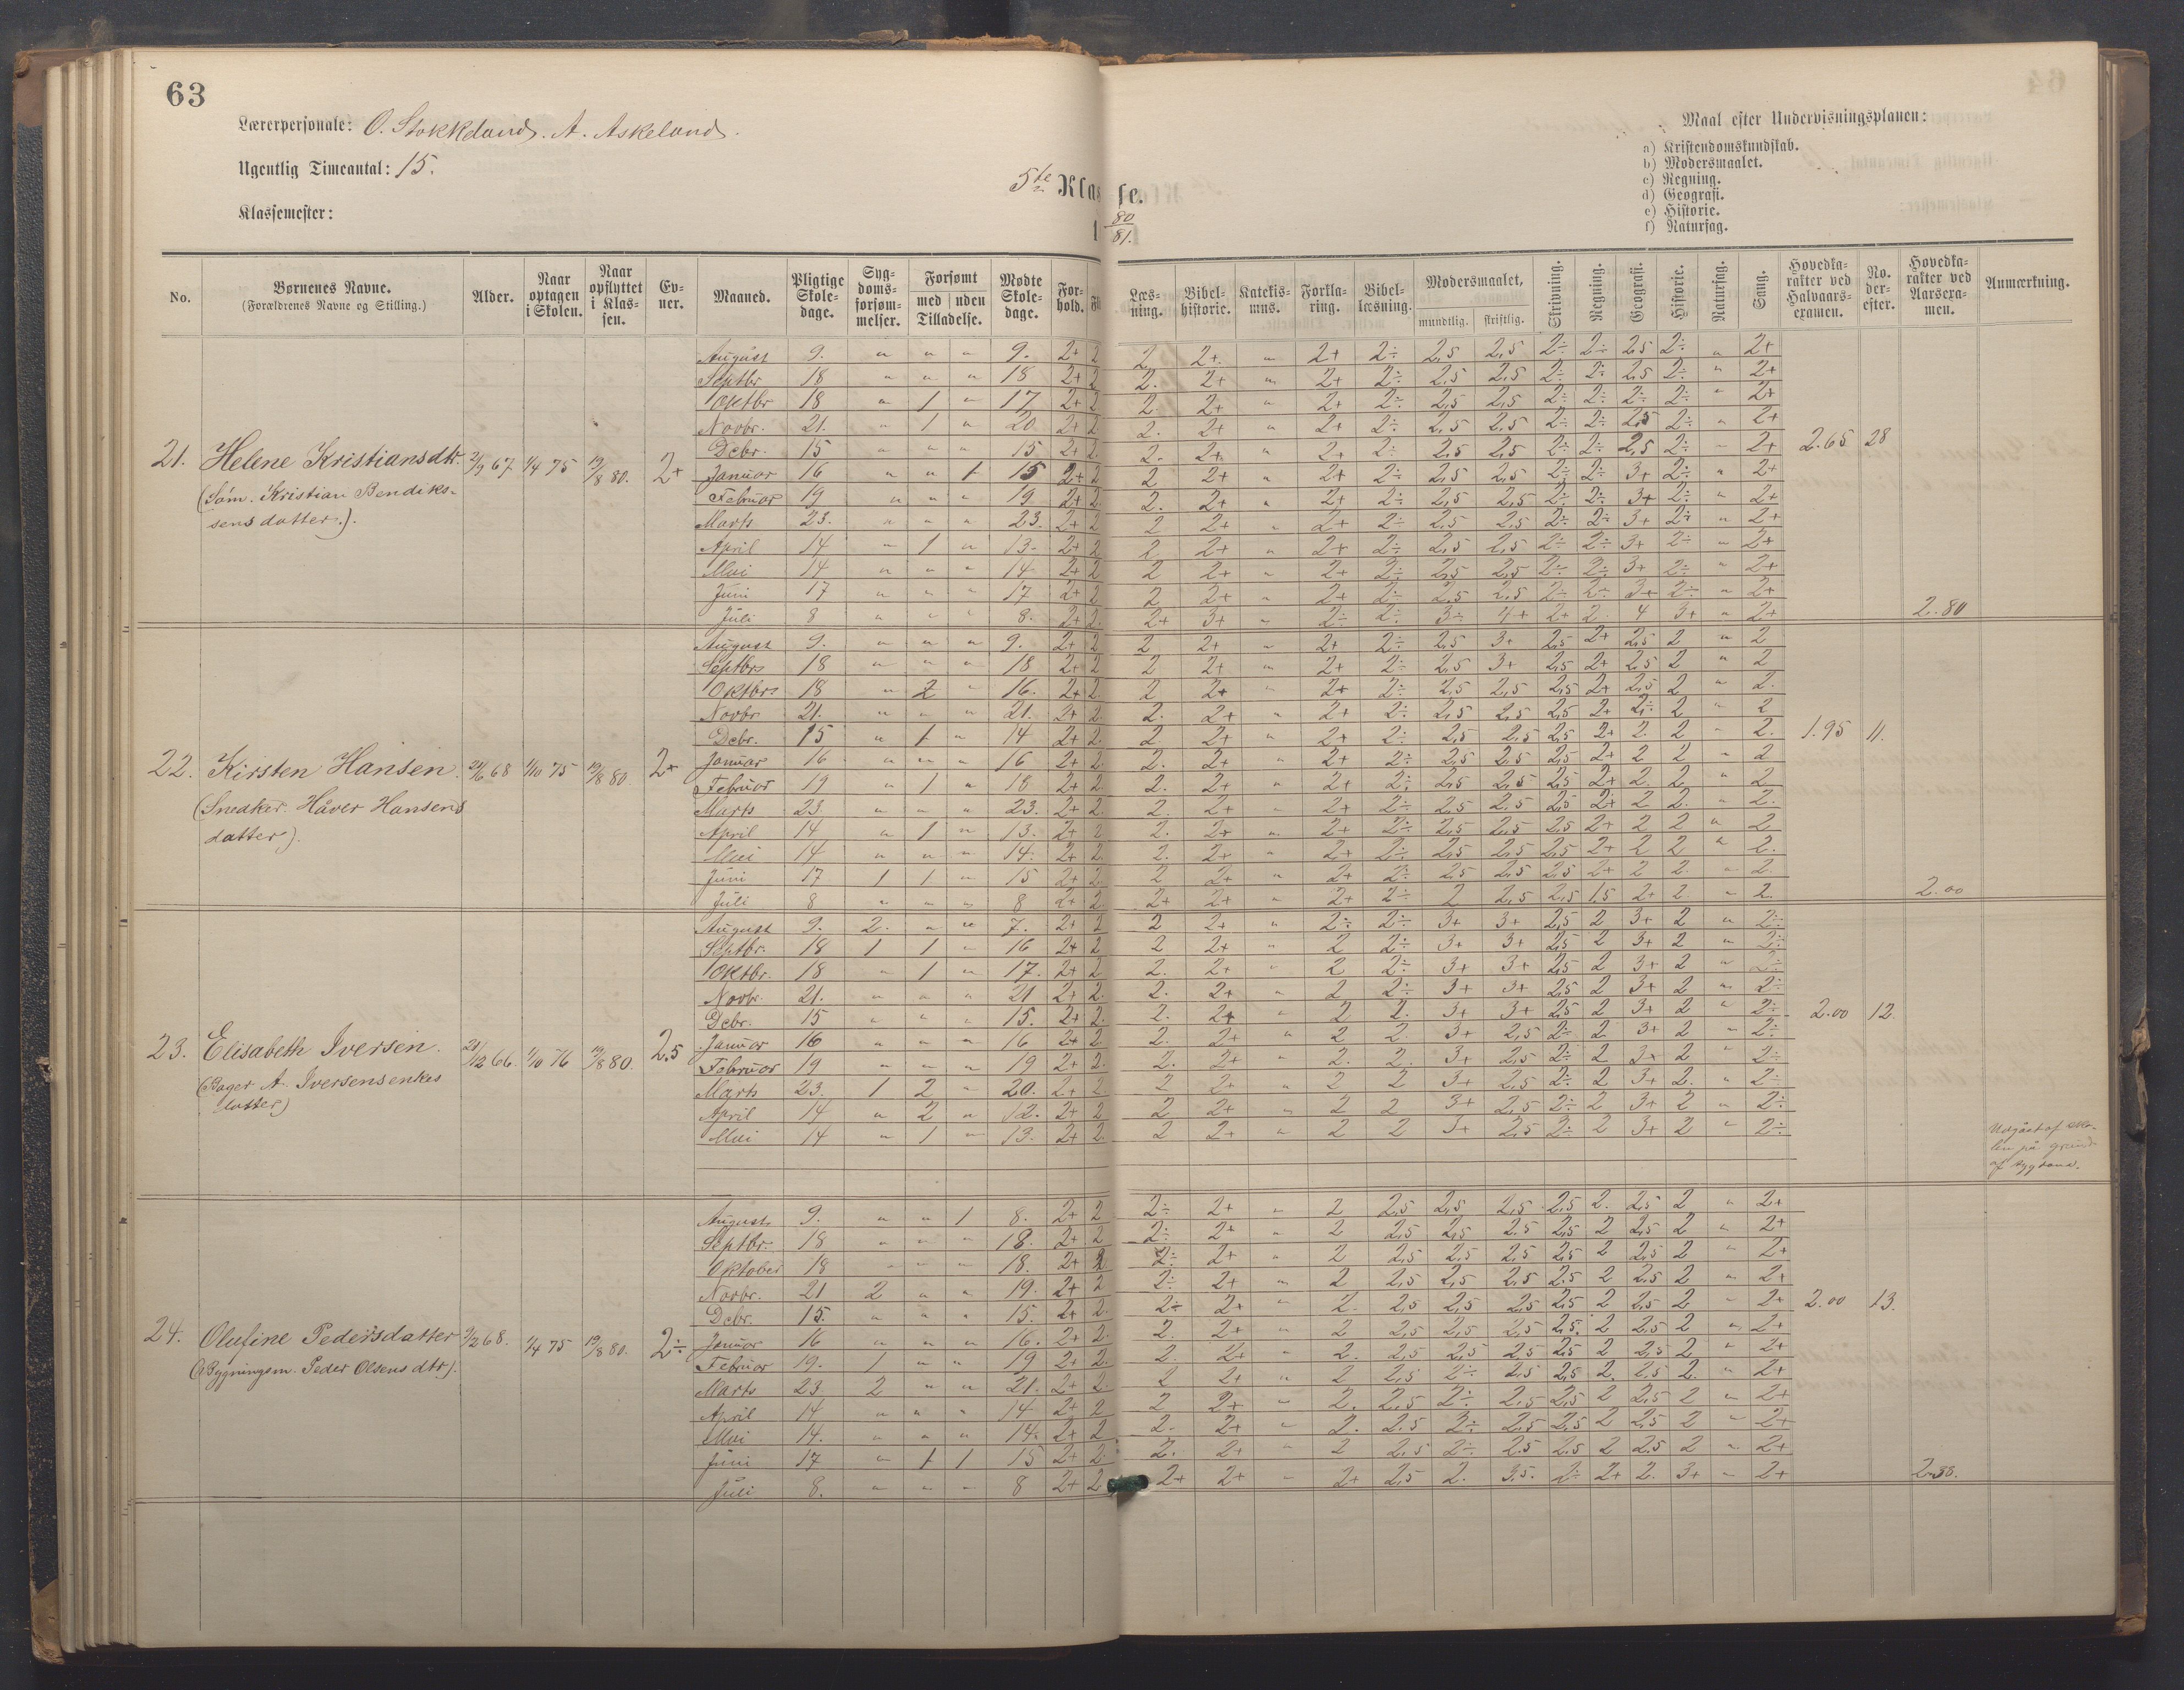 63
Lærerpersonale: O. Stokkeland. A. Askeland.
Ugentlig Timeantal: 15.
Klassemester:
5te Klasse.
80
81.
Maal efter Undervisningsplanen:
a) Kristendomskundskab.
b) Modersmaalet.
c) Regning.
d) Geografi.
e) Historie.
f) Naturfag.
No. Børnenes Navne. (Forældrenes Navne og Stilling.) Alder. Naar optagen i Skolen. Naar opflyttet i Klassen. Evner. Maaned. Pligtige Skoledage. Sygdomsforsømmelser. Forsømt med uden Tilladelse. Mødte Skoledage. Forhold. Læsning. Bibelhistorie. Katekismus. Forklaring. Bibellæsning. Modersmaalet, mundtlig. skriftlig. Skrivning. Regning. Geografi. Historie. Naturfag. Sang. Hovedkarakter ved Halvaarsexamen. No. derefter. Hovedkarakter ved Aarsexamen. Anmærkning.
August 9. " " " 9. 2+ 2 2 2+ " 2+ 2÷ 2,5 2,5 2÷ 2÷ 2,5 2÷ " 2+
Septbr 18 " " " 18 2+ 2 2. 2+ " 2+ 2÷ 2,5 2,5 2÷ 2÷ 2,5 2÷ " 2+
Oktbr 18 " 1 " 17 2+ 2 2. 2+ " 2+ 2÷ 2,5 2,5 2÷ 2÷ 2÷ 2÷ " 2+
Novbr. 21. " 1 " 20 2+ 2 2. 2+ " 2+ 2÷ 2,5 2,5 2÷ 2÷ 2,5 2÷ " 2+
Debr. 15 " " " 15 2+ 2 2. 2+ " 2+ 2÷ 2,5 2,5 2÷ 2÷ 2,5 2÷ " 2+ 2.65 28
21. Helene Kristiansdtr. 2/9 67. 1/4 75 19/8 80. 2+ Januar 16 " " 1 15 2+ 2 2 2+ " 2+ 2÷ 2,5 2,5 2÷ 2÷ 3+ 2÷ " 2+
(Søm. Kristian Bendiks- Februar 19 " " " 19 2+ 2 2. 2+ " 2+ 2÷ 2,5 2,5 2÷ 2÷ 3+ 2÷ " 2+
sens datter.). Marts 23. " " " 23. 2+ 2 2 2+ " 2+ 2÷ 2,5 2,5 2÷ 2÷ 3+ 2÷ " 2+
April 14 " 1 " 13. 2+ 2 2 2+ " 2+ 2÷ 2,5 2,5 2÷ 2÷ 3+ 2÷ " 2+
Mai 14 " " " 14 2+ 2 2 2+ " 2+ 2÷ 2,5 2,5 2÷ 2÷ 3+ 2÷ " 2+
Juni 17 " " " 17 2+ 2 2 2+ " 2+ 2÷ 2,5 2,5 2÷ 2÷ 3+ 2÷ " 2+
Juli 8 " " " 8. 2+ 2. 2+ 3+ " 2÷ 2÷ 3÷ 4+ 2+ 2 4 3+ " 2+ 2.80
August 9. " " " 9. 2+ 2 2 2+ " 2+ 2÷ 2,5 3+ 2,5 2+ 2,5 2 " 2
Septbr 18 " " " 18 2+ 2 2 2+ " 2+ 2÷ 2,5 3+ 2,5 2+ 2,5 2 " 2
Oktbr 18 " 2 " 16. 2+ 2 2 2+ " 2+ 2÷ 2,5 2,5 2,5 2+ 2,5 2 " 2.
Novbr 21. " " " 21. 2+ 2. 2. 2+ " 2+ 2÷ 2,5 2,5 2,5 2+ 2÷ 2 " 2
Debr. 15 " 1 " 14 2+ 2. 2 2+ " 2+ 2÷ 2,5 2,5 2,5 2+ 2 2 " 2. 1.95 11.
22. Kirsten Hansen. 24/6 68 1/10 75 19/8 80. 2+ Januar 16 " " " 16 2+ 2 2. 2+ " 2+ 2÷ 2,5 2,5 2,5 2+ 2 2 " 2
(Snedker. Håver Hansens Februar 19 " 1 " 18 2+ 2 2. 2+ " 2+ 2÷ 2,5 2,5 2,5 2+ 2. 2 " 2
datter). Marts 23. " " " 23. 2+ 2. 2. 2+ " 2+ 2÷ 2,5 2,5 2,5 2+ 2 2. " 2.
April 14 " 1 " 13. 2+ 2 2. 2+ " 2+ 2÷ 2,5 2,5 2,5 2+ 2 2 " 2
Mai 14 " " " 14. 2+ 2 2. 2+ " 2+ 2÷ 2,5 2,5 2,5 2+ 2 2 " 2.
Juni 17 1 1 " 15 2+ 2. 2 2+ " 2+ 2÷ 2,5 2,5 2,5 2+ 2 2. " 2.
Juli 8 " " " 8 2+ 2. 2+ 2+ " 2+ 2÷ 2 2,5 2,5 1,5 2+ 2. " 2. 2.00
August 9. 2. " " 7. 2+ 2 2 2+ " 2÷ 2÷ 3+ 3+ 2,5 2 3+ 2 " 2÷
Septbr. 18 1 1 " 16 2+ 2 2 2+ " 2 2÷ 3+ 3+ 2,5 2 3+ 2 " 2÷
Oktbr. 18 " 1 " 17. 2+ 2 2. 2+ " 2 2÷ 3+ 3+ 2,5 2 3+ 2 " 2÷
Novbr. 21. " " " 21 2+ 2. 2. 2+ " 2 2÷ 3+ 3+ 2,5 2 3+ 2 " 2÷
Debr. 15 " " " 15. 2+ 2. 2. 2+ " 2 2. 3+ 3+ 2,5 2 3+ 2 " 2÷ 2.00 12.
23. Elisabeth Iversen. 21/12 66. 1/10 76 19/8 80. 2,5 Januar 16 " " " 16 2+ 2 2. 2+ " 2 2. 3+ 2,5 2÷ 2 3+ 2 " 2÷
(Bager A. Iversens enkes Februar 19 " " " 19 2+ 2. 2. 2+ " 2. 2. 3+ 2,5 2÷ 2 3+ 2 " 2÷
datter) Marts 23. 1 2 " 20. 2+ 2 2 2+ " 2 2 3+ 2,5 2÷ 2 3+ 2. " 2÷
April 14 " 2 " 12. 2+ 2 2 2+ " 2 2 3+ 2,5 2÷ 2 3+ 2 " 2÷
Mai 14 " 1 " 13. 2+ 2. 2 2+ " 2 2 3+ 2,5 2÷ 2 3+ 2 " 2÷ Udgåat af sko-
len på grund
af sygdom.
August 9. " " 1 8. 2+ 2 2÷ 2+ " 2 2,5 2,5 2,5 2,5 2. 2,5 2 " 2+
Septbr. 18 " " " 18. 2+ 2 2÷ 2+ " 2 2,5 2,5 2,5 2,5 2 2,5 2 " 2+
Oktober 18 " " " 18. 2+ 2. 2÷ 2+ " 2 2,5 2,5 2,5 2,5 2 2,5 2 " 2+
Novbr. 21 2 " " 19. 2+ 2 2÷ 2+ " 2 2,5 2,5 2,5 2,5 2 2,5 2 " 2+
Debr. 15. " " " 15. 2+ 2. 2÷ 2+ " 2. 2,5 2,5 2,5 2,5 2 2,5 2 " 2+ 2.00 13.
24. Olufine Pedersdatter 3/2 68. 1/4 75 19/8 80. 2÷ Januar 16 " " " 16. 2+ 2. 2. 2+ " 2 2,5 2,5 2,5 2,5 2 2,5 2 " 2+
(Bygningsm. Peder Olsens dtr.). Februar 19. 1 " " 19 2+ 2. 2. 2+ " 2. 2,5 2,5 2,5 2,5 2 2,5 2 " 2+
Marts 23. 2 " " 21. 2+ 2. 2 2+ " 2 2,5 2÷ 2,5 2,5 2. 2,5 2. " 2+
April 14 " " " 14 2+ 2 2 2+ " 2. 2,5 2÷ 2,5 2,5 2 2,5 2 " 2+
Mai 14. " " " 14. 2+ 2 2. 2+ " 2. 2,5 2÷ 2,5 2,5 2 2,5 2 " 2+
Juni 17 " 1 1 15 2+ 2. 2. 2+ " 2 2,5 2÷ 2,5 2,5 2 2,5 2 " 2+
Juli 8. " " " 8 2+ 2. 2+ 2+ " 2+ 2,5 2. 3,5. 2÷ 2+ 2. 3+ " 2+ 2.38.